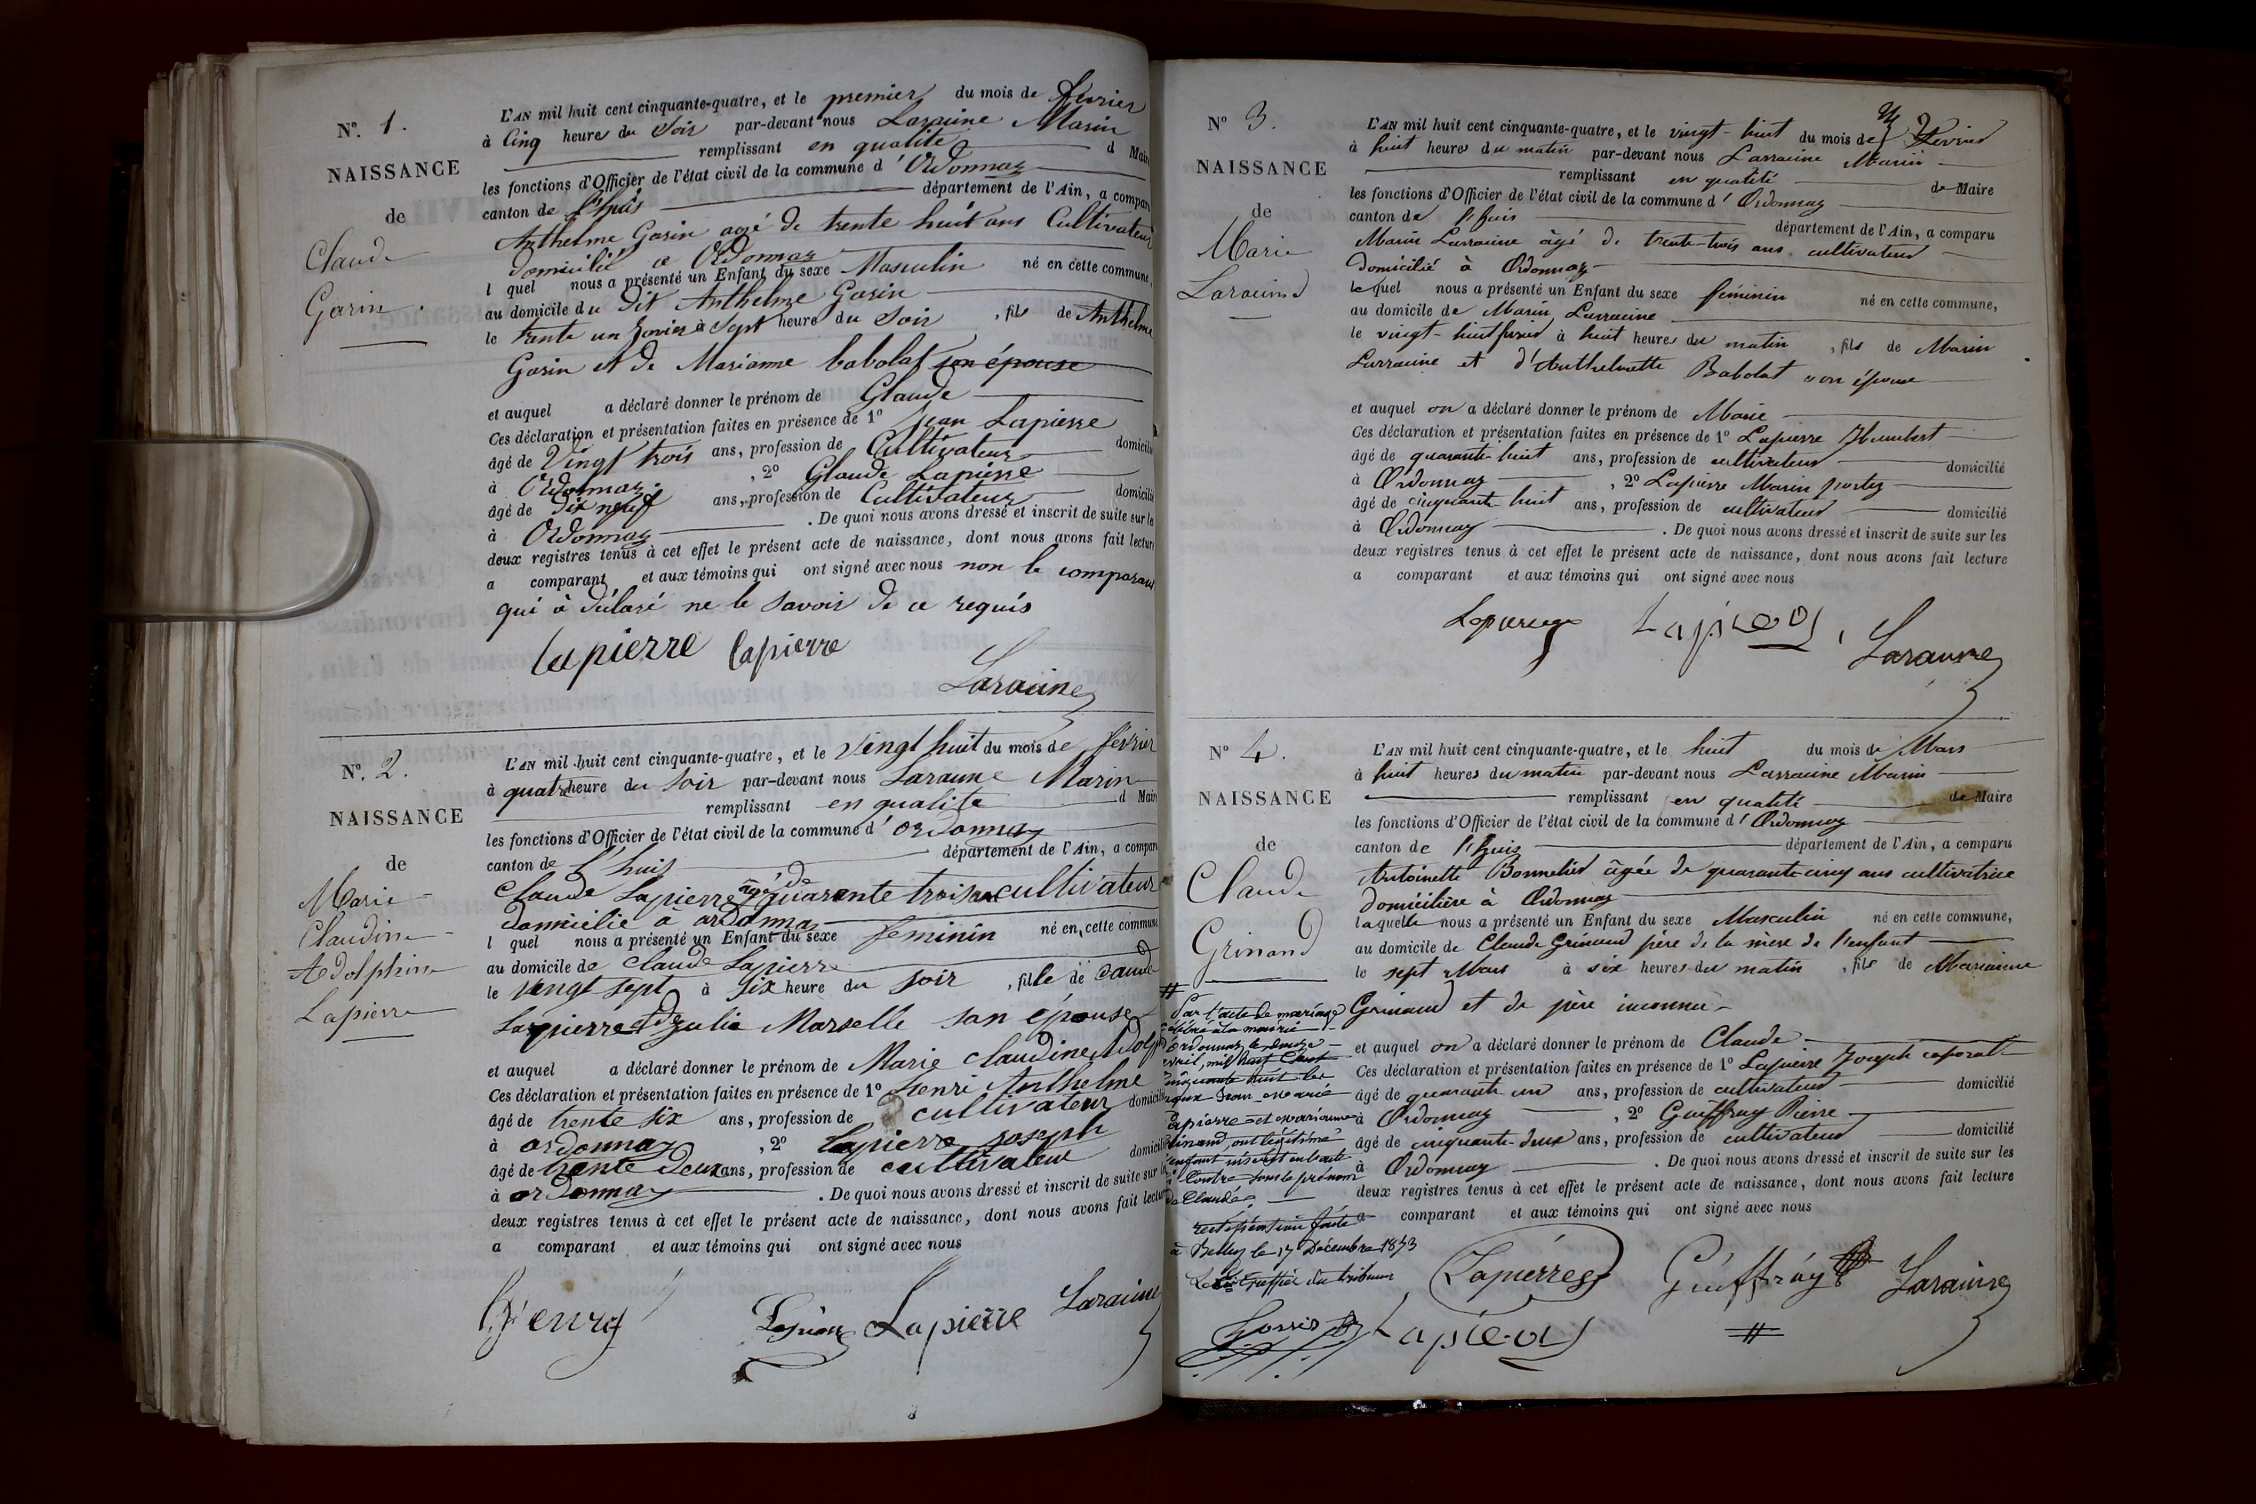 N°. 1.
NAISSANCE
de
Claude
Garin.
L'AN mil huit cent cinquante-quatre, et le premier du mois de fevrier
à Cinq heure du Soir par-devant nous Laraine Marin
remplissant en qualité d Maire
les fonctions d'Officier de l'état civil de la commune d' Ordonnaz
canton de l'huis département de l'Ain, a compar
Anthelme Garin agé de trente huit ans Cultivateur
domicilié a Ordonnaz
l quel nous a présenté un Enfant du sexe Masculin né en cette commune,
au domicile du dit Anthelme Garin
le trente un Janvier à Sept heure du Soir , fils de Anthelme
Garin et de Marianne babolat son épouse
et auquel a déclaré donner le prénom de Glaude
Ces déclaration et présentation faites en présence de 1° Jean Lapierre
âgé de Vingt trois ans, profession de Cultivateur domicilié
à Ordonnaz , 2° Glaude Lapierre
âgé de dix neuf ans, profession de Cultivateur domicilié
à Ordonnaz . De quoi nous avons dressé et inscrit de suite sur le
deux registres tenus à cet effet le présent acte de naissance, dont nous avons fait lecture
a comparant et aux témoins qui ont signé avec nous non le comparant
qui à déclaré ne le savoir de ce requis
Lapierre Lapierre
Laraine
N°. 2.
NAISSANCE
de
Marie
Claudine
Adolphine
Lapierre
L'AN mil huit cent cinquante-quatre, et le vingt huit du mois de février
à quatre heure du soir par-devant nous Laraine Marin
remplissant en qualité d Maire
les fonctions d'Officier de l'état civil de la commune d' ordonnaz
canton de l'huis département de l'Ain, a compar
Claude Lapierre âgé de quarente trois ans cultivateur
domicilié à ordonnaz
l quel nous a présenté un Enfant du sexe feminin né en cette commune
au domicile de claude Lapierre
le vengt sept à six heure du soir , fille de Claude
Lapierre et de Julie Marselle son épouse
et auquel a déclaré donner le prénom de Marie claudine Adolp
Ces déclaration et présentation faites en présence de 1° henri Anthelme
âgé de trente six ans, profession de cultivateur domicilié
à ordonnaz , 2° Lapierre joseph
âgé de trente deux ans, profession de cultivateur domicilié
à ordonnaz . De quoi nous avons dressé et inscrit de suite sur le
deux registres tenus à cet effet le présent acte de naissance, dont nous avons fait lecture
a comparant et aux témoins qui ont signé avec nous
henry Lapierre Laraine
N° 3.
NAISSANCE
de
Marie
Laraine
L'AN mil huit cent cinquante-quatre, et le vingt-huit du mois de fevrier
à huit heures du matin par-devant nous Larraine Marin
remplissant en qualité de Maire
les fonctions d'Officier de l'état civil de la commune d' Ordonnaz
canton de l'huis département de l'Ain, a comparu
Marin Larraine âgé de trente-trois ans cultivateur
domicilié à Ordonnaz
lequel nous a présenté un Enfant du sexe féminin né en cette commune,
au domicile de Marin Larraine
le vingt-huit fevrier à huit heures du matin , fils de Marin
Larraine et d'Anthelmette Babolat son épouse
et auquel on a déclaré donner le prénom de Marie
Ces déclaration et présentation faites en présence de 1° Lapierre Humbert
âgé de quarante-huit ans, profession de cultivateur domicilié
à Ordonnaz , 2° Lapierre Marin
âgé de cinquante huit ans, profession de cultivateur domicilié
à Ordonnaz . De quoi nous avons dressé et inscrit de suite sur les
deux registres tenus à cet effet le présent acte de naissance, dont nous avons fait lecture
a comparant et aux témoins qui ont signé avec nous
Laraine
N° 4.
NAISSANCE
de
Claude
Grinand
L'AN mil huit cent cinquante-quatre, et le huit du mois de Mars
à huit heures du matin par-devant nous Larraine Marin
remplissant en qualité de Maire
les fonctions d'Officier de l'état civil de la commune d' Ordonnaz
canton de l'huis département de l'Ain, a comparu
Antoinette Bonnelier âgée de quarante-cinq ans cultivatrice
domicilière à Ordonnaz
laquelle nous a présenté un Enfant du sexe Masculin né en cette commune,
au domicile de Claude Grinand père de la mère de l'enfant
le sept Mars à six heures du matin , fils de Marianne
Grinand et de père inconnu
et auquel on a déclaré donner le prénom de Claude
Ces déclaration et présentation faites en présence de 1° Lapierre Joseph caporal
âgé de quarante un ans, profession de cultivateur domicilié
à Ordonnaz , 2° Guiffray Pierre
âgé de cinquante-deux ans, profession de cultivateur domicilié
à Ordonnaz . De quoi nous avons dressé et inscrit de suite sur les
deux registres tenus à cet effet le présent acte de naissance, dont nous avons fait lecture
a comparant et aux témoins qui ont signé avec nous
Lapierre Guiffray Laraine
#
Par l'acte de mariage
célébré à la mairie
d'Ordonnaz le douze
avril, mil huit cent
cinquante huit les
époux Jean-Marie
Lapierre et Marianne
Grinand, ont légitimé
l'enfant inscrit en l'acte
ci contre sous le prénom
de Claude.
à Belley le 17 Décembre 1873
Le Greffier du tribunal
#